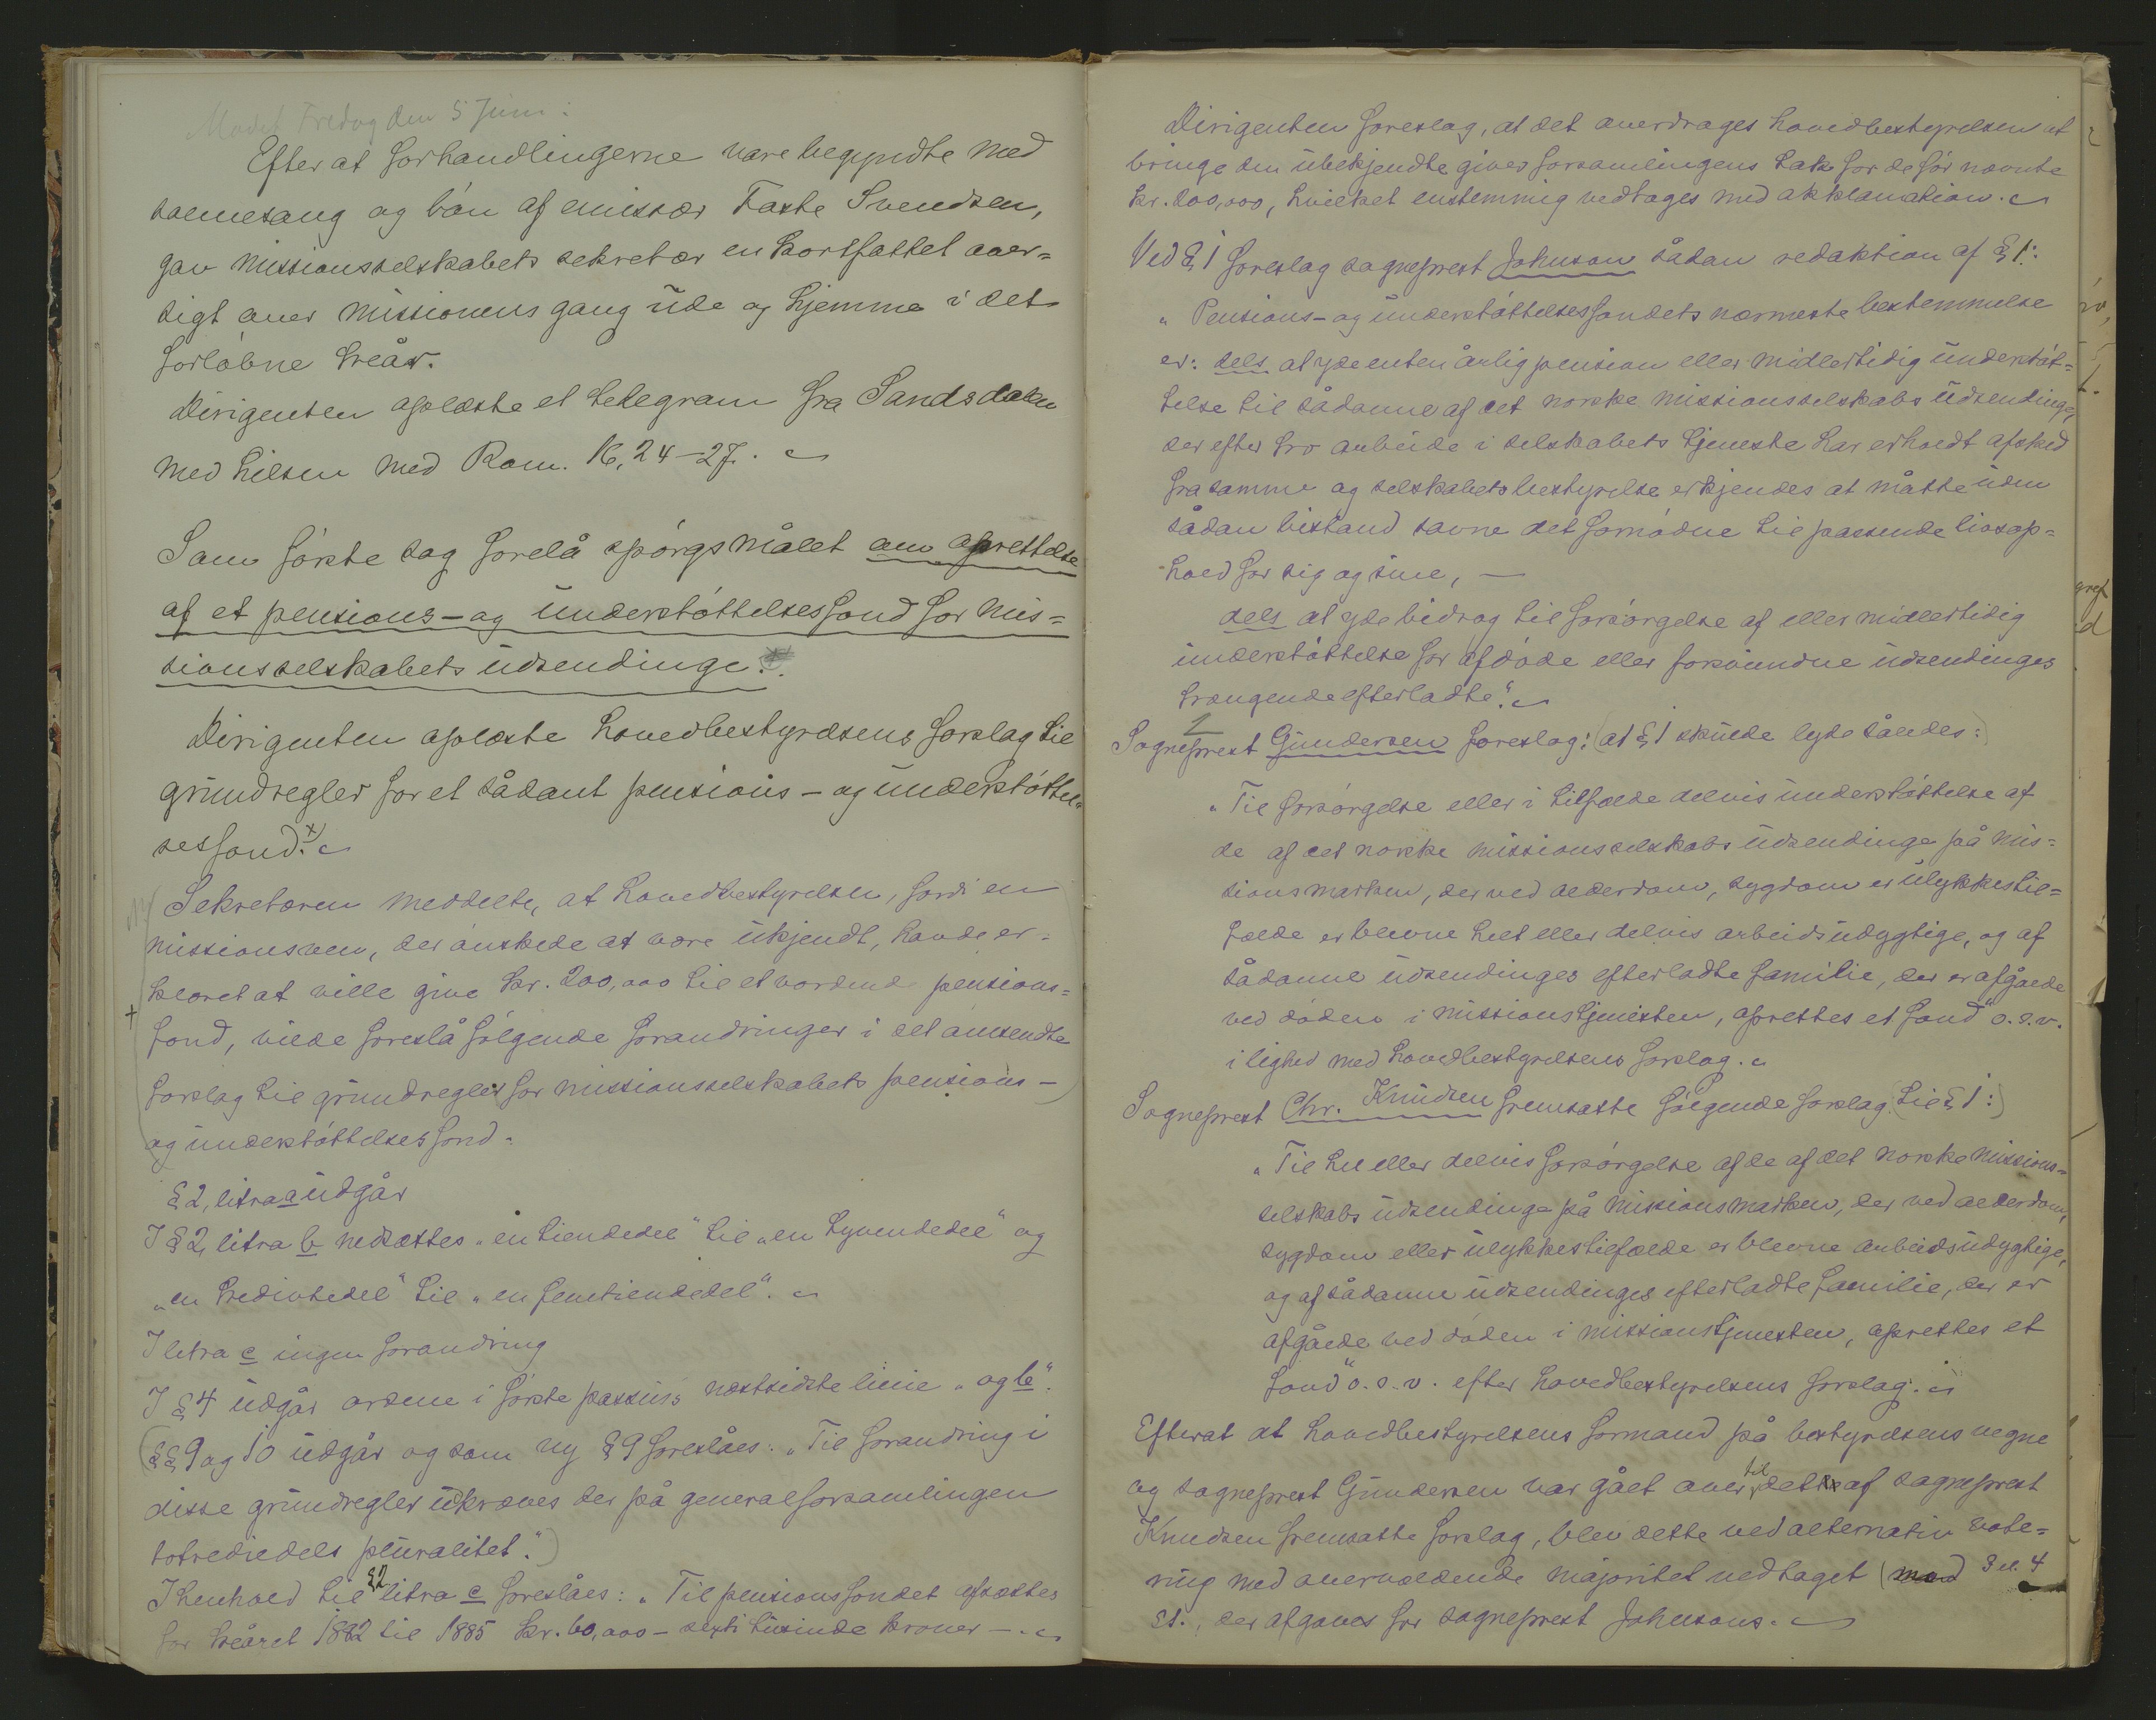 Mødet Fredag den 5 Juni:
Efter at forhandlingerne vare begyndte med
salmesang og bön af emissær Taxte Svendsen,
gav missionsselskabets sekretær en kortfattet over=
sigt over missionens gang ude og hjemme i det
forløbne treår.
Dirigenten oplæste et telegram fra Sandsdalen
med hilsen med Rom. 16, 24-27.
Som første sag forelå spörgsmålet om oprettelse
af et pensions- og understöttelsesfond for mis=
sionsselskabets udsendinge.
Dirigenten oplæste hovedbestyrelsens forslag til
grundregler for et sådant pensions- og understöttel=
sesfond. x)
Sekretæren meddelte, at hovedbestyrelsen, fordi en
missionsven, der önskede at være ukjendt, havde er=
klæret at ville give kr. 200,000 til et vordende pensions=
+ fond, vilde foreslå fölgende forandringer i det omsendte
forslag til grundregler for missionsselskabets pensions-
og understöttelsesfond.
§ 2, litra a udgår
I § 2, litra b nedsættes „en tiendedel" til „en tyvendedel" og
„en tredivtedel" til „en femtiendedel".
I litra c ingen forandring
I § 4 udgår ordene i förste passus's næstsidste linie „og b".
(§§ 9 og 10 udgår og som ny § 9 foreslåes: „Til forandring i
disse grundregler udkræves der på generalforsamlingen
totrediedels pluralitet.")
I henhold til § 2 litra c foreslåes: „Til pensionsfondet afsættes
for treåret 1882 til 1885 kr. 60,000 - sexti tusinde kroner -.
Dirigenten foreslog, at det overdrages hovedbestyrelsen at
bringe den ubekjendte giver forsamlingens tak for de för nævnte
kr. 200,000, hvilket enstemmig vedtages med akklamation.
Ved § 1 foreslog sogneprest Johnson sådan redaktion af § 1:
„Pensions- og understöttelsesfondets nærmeste bestemmelse
er: dels at yde enten årlig pension eller midlertidig understöt=
telse til sådanne af det norske missionsselskabs udsendinge,
der efter tro arbeide i selskabets tjeneste har erholdt afsked
fra samme og selskabets bestyrelse erkjendes at måtte uden
sådan bistand savne det fornödne til passende livsop=
hold for sig og sine, —
dels at yde bidrag til forsörgelse af eller midlertidig
understöttelse for afdöde eller forsvundne udsendinges
trængende efterladte."
Sogneprest Gundersen foreslog: (at § 1 skulde lyde således:)
„Til forsörgelse eller i tilfælde delvis understöttelse af
de af det norske missionsselskabs udsendinge på mis=
sionsmarken, der ved alderdom, sygdom er ulykkestil=
fælde er blevne helt eller delvis arbeidsudygtige, og af
sådanne udsendinges efterladte familie, der er afgåede
ved döden i missionstjenesten, oprettes et fond" o.s.v.
i lighed med hovedbestyrelsens forslag.
Sogneprest Chr. Knudsen fremsatte fölgende forslag (til § 1:)
„Til hel eller delvis forsörgelse af de af det norske missions=
selskabs udsendinge på missionsmarken, der ved alderdom,
sygdom eller ulykkestilfælde er blevne arbeidsudygtige,
og af sådanne udsendinges efterladte familie, der er
afgåede ved döden i missionstjenesten, oprettes et
fond" o.s.v. efter hovedbestyrelsens forslag.
Efterat at hovedbestyrelsens formand på bestyrelsens vegne
og sogneprest Gundersen var gået over til det af sogneprest
Knudsen fremsatte forslag, blev dette ved alternativ vote=
ring med overvældende majoritet vedtaget (mod 3 el. 4
st., der afgaves for sogneprest Johnsons.